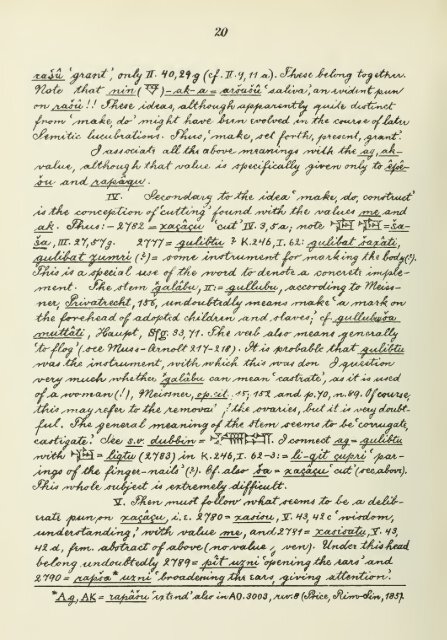 20
rašû 'grant', only II. 40, 29g (cf. II. 4, 11 a). These belong together.
Note that nin( )-ak-a = arôušû 'saliva', an evident pun
on rašû!! These ideas, although apparently quite distinct
from 'make, do' might have been evolved in the course of later
Semitic lucubrations. Thus, 'make, set forth, present, grant'.
I associate all the above meanings with the ag, ak-
value, although that value is specifically given only to
and rapâqu.
IV. Secondary to the idea 'make, do, construct'
is the conception of 'cutting' found with the values me and
ak. Thus:- 2782 = xaçâçu 'cut' IV. 3, 5a; note = ša-
ša, III. 27, 57g. 2777 = gulibtu ? K.246, I. 62: gulibat šaxâti,
gulibat zumri (?) = some instrument for marking the body(?).
This is a special use of the word to denote a concrete imple-
ment. The stem galâbu, II: = gullubu, according to Meiss-
ner, Privatrecht, 158, undoubtedly means make 'a mark on
the forehead of adopted children and slaves;' cf.
muttâti, Haupt, 33, 71. The verb also means generally
'to flog' (see Muss-Arnolt 217-218). It is probable that gulibtu
was the instrument, with which this was don. I question
very much whether galâbu can mean 'castrate', as it is used
of a woman (!), Meissner, op.cit. 15, 152 and p. 70, n. 89. Of course,
this may refer to the remova! the ovaries, but it is very doubt-
ful. The general meaning of the stem seems to be 'corrugate,
castigate.' See s.v. dubbin = . I connect ag = gulibtu
with = ligtu (2783) in K.246, I. 62-3: li-git çupri 'par-
ings of the finger-nails' (?). Cf. also ša = xaçâçu 'cut' (see above).
This whole subject is extremely difficult.
V. Then must follow what seems to be a delib-
erate pun, on xaçâçu, i.e. 2780 = xasisu, V. 43, 42 c 'wisdom,
understanding,' with value me, and 2791 = xasisatu, V. 43,
42 d, fem. abstract of above (no value given). Under this head
belong undoubtedly 2789 = pît uzni 'opening the ears' and
2790 = rapša* uzni 'broadening the ears, giving attention.'
*Ag, AK = rapâšu 'extend' also in AO. 3003, rev. 8 (Price, Rim-Sin, 185).